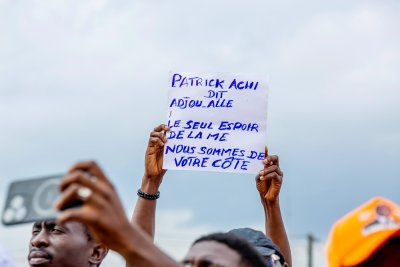 PATRICK ACHI
DIT
ADJOU_ALLE
!
LE SEUL ESPOIR
DE LA ME
NOUS SOMMES DE
VOTRE CÔTE